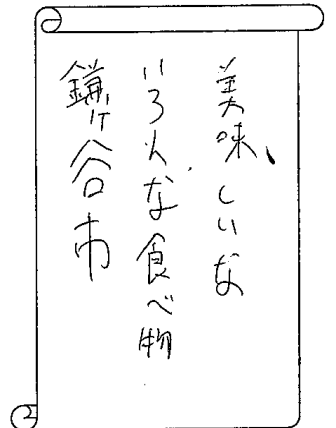 美味しいな
いろんな食べ物
鎌ヶ谷市